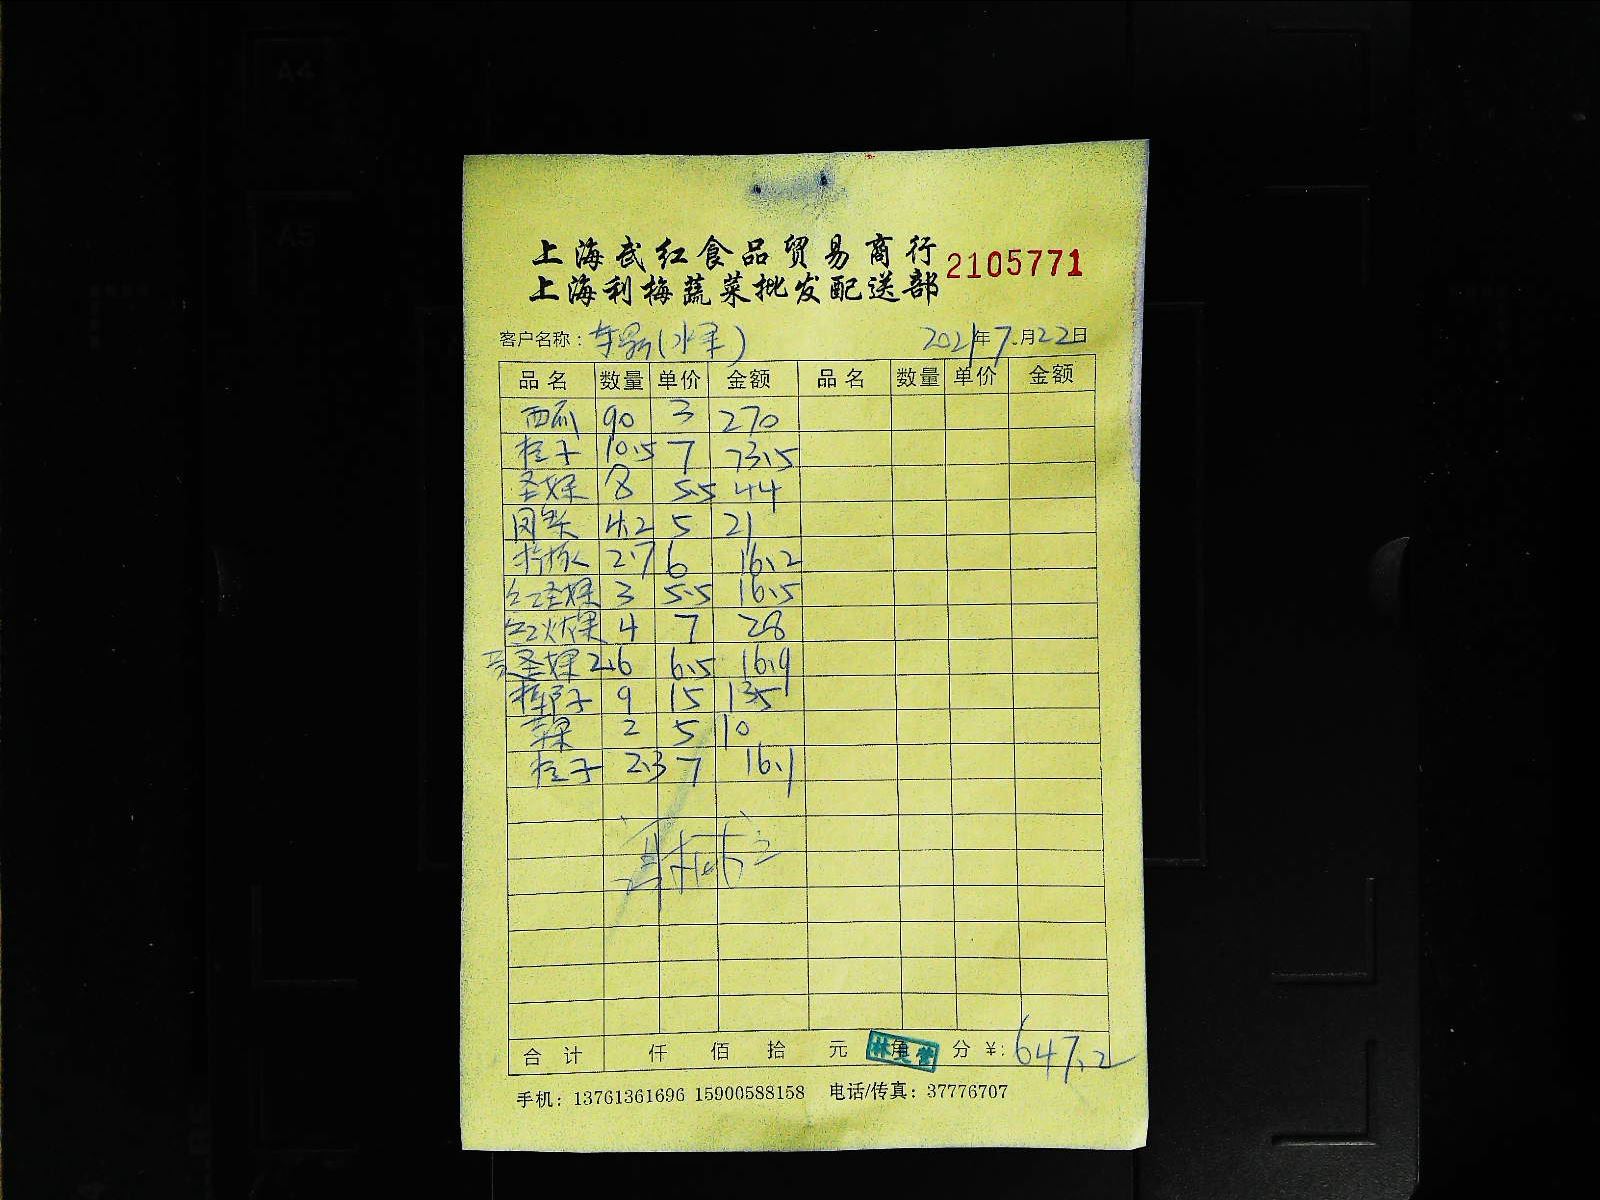 A4
A5
上海武红食品贸易商行
2105771
上海利梅蔬菜批发配送部
客户名称: (水果) 2021年7月22日
品名 数量 单价 金额 品名 数量 单价 金额
西瓜 90 3 270
桔子 10.5 7 73.5
圣女果 8 5.5 44
4.2 5 21
柠檬 2.7 6 16.2
红圣女果 3 5.5 16.5
红火龙果 4 7 28
黄圣女果 2.6 6.5 16.9
9 15 135
苹果 2 5 10
桔子 2.3 7 16.1
合计 仟 佰 拾 元 角 分 ¥: 647.2
手机: 13761361696 15900588158 电话/传真: 37776707